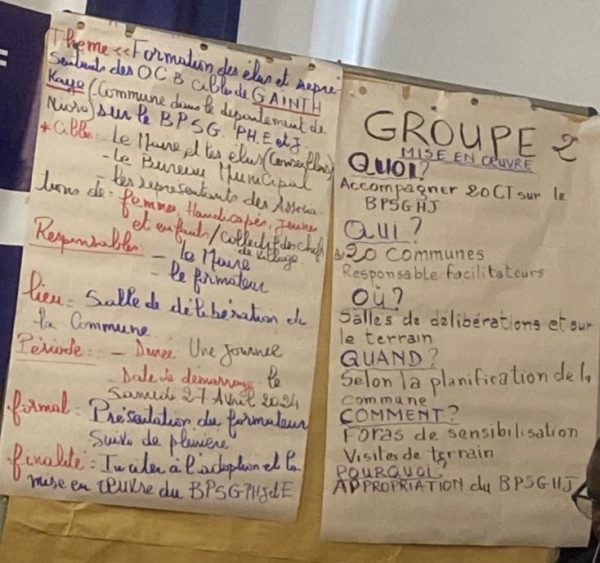 Thème << Formation des élus et repré
sentants des OCB cibles de GAINTH
Kaye (Commune dans le département de
Nioro) sur le BPSG, PH, E et J
* Cibles: - Le Maire et les élus (Conseillers)
- Le Bureau Municipal
- les représentants des Associa
tions de - femmes, Handicapés, jeunes
et enfants / Collectif des chefs
de village
Responsables: - le Maire
- le formateur
lieu: Salle de délibération de
la Commune
Période: - Durée Une journée
- Date de démarrage le
Samedi 27 Avril 2024
format: Présentation du formateur
Suivi de plénière
finalité: Inciter à l'adoption et la
mise en œuvre du BPSG PHJ et E
GROUPE 2
MISE EN ŒUVRE
QUOI?
Accompagner 20CT sur le
BPSGHJ
QUI?
20 Communes
Responsable facilitateurs
OÙ?
Salles de délibérations et sur
le terrain
QUAND?
Selon la planification de la
commune
COMMENT?
Foras de sensibilisation
Visites de terrain
POURQUOI?
APPROPRIATION du BPSGHJ